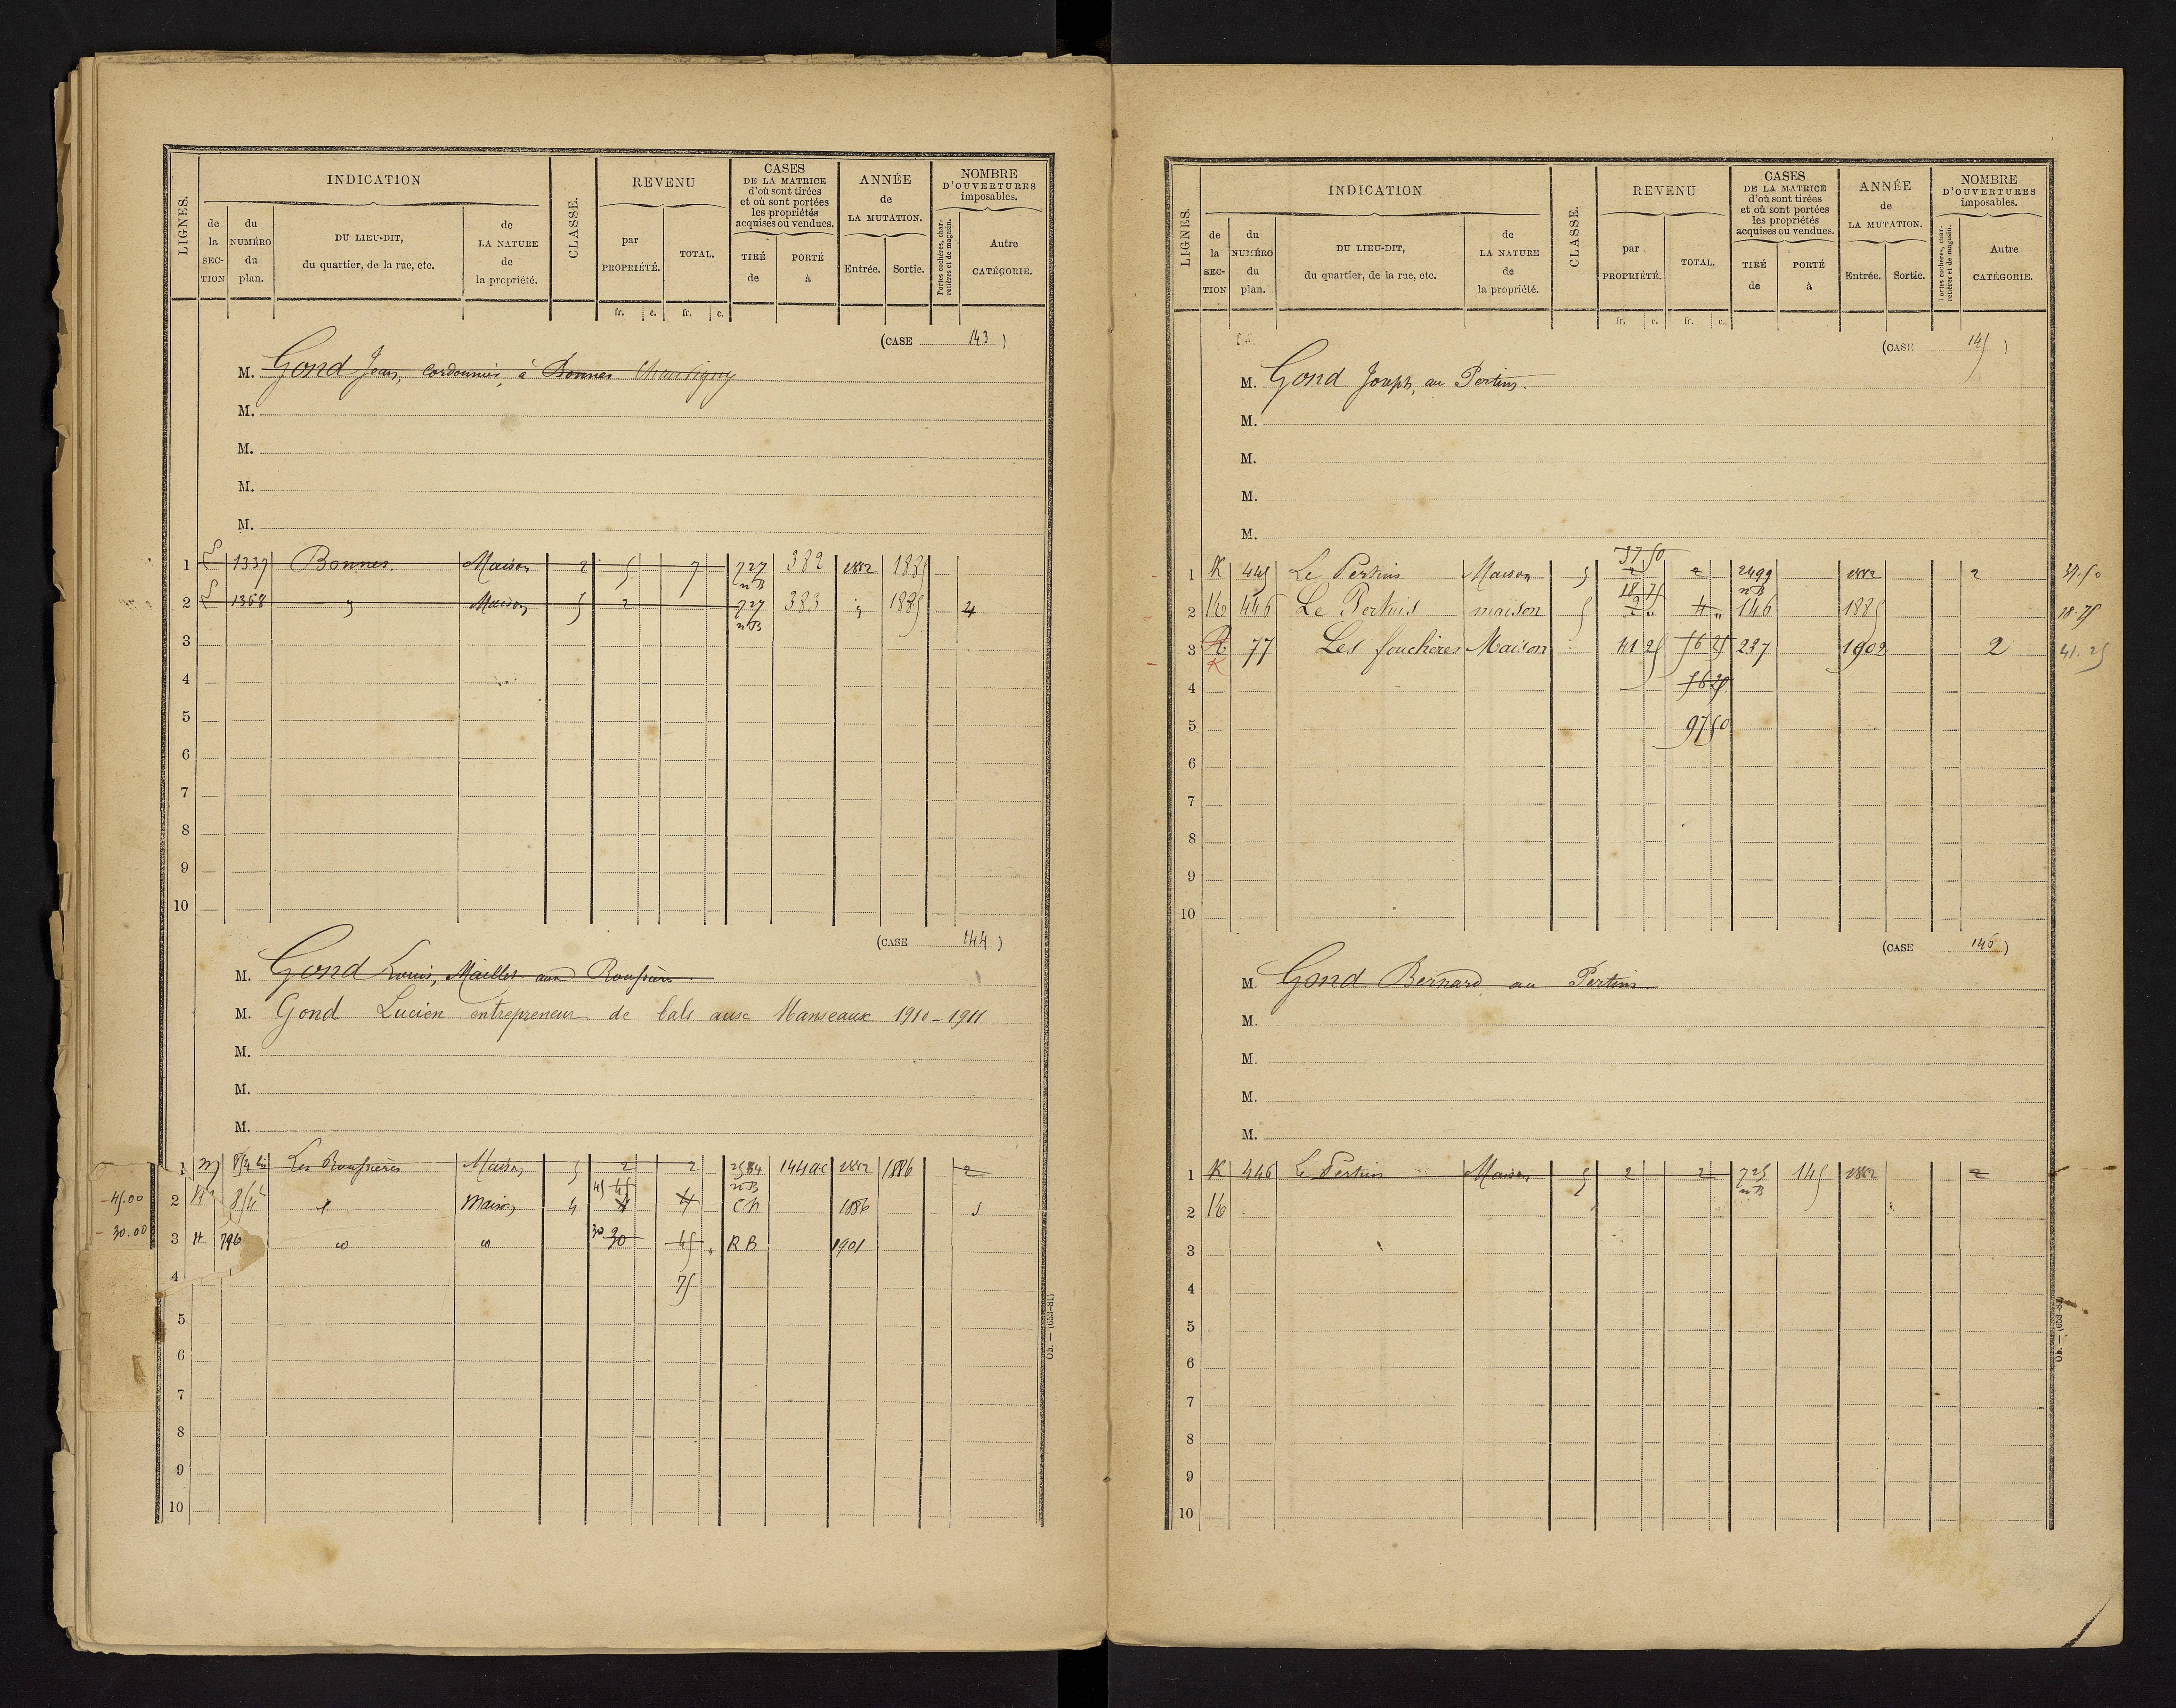 LIGNES.
INDICATION
CLASSE.
REVENU
CASES
DE LA MATRICE
d'où sont tirées
et où sont portées
les propriétés
acquises ou vendues.
ANNÉE
de
LA MUTATION.
NOMBRE
D'OUVERTURES
imposables.
de la SECTION
du NUMÉRO du plan.
DU LIEU-DIT,
du quartier, de la rue, etc.
de LA NATURE de la propriété.
par PROPRIÉTÉ.
TOTAL.
TIRÉ de
PORTÉ à
Entrée.
Sortie.
Portes cochères, charretières et de magasin.
Autre CATÉGORIE.
fr. c. fr. c.
(CASE 143)
M. Gond Jean, cordonnier, à Bonnes Chauvigny
M.
M.
M.
M.
1 1337 Bonnes. Maison 2 5 7 727 nB 382 1882 1885
2 1368 " Maison 5 2 727 nB 383 " 1885 4
3
4
5
6
7
8
9
10
(CASE 144)
M. Gond Louis, Maillet aux
M. Gond Lucien entrepreneur de bals aux Manseaux 1910-1911
M.
M.
M.
1 Les Maison 5 2 2 2584 nB 144 1882 1886 2
-45.00 2 Maison 4 45 4 4 Cn 1886
-30.00 3 H 796 30 30 45 RB 1901
4 75
5
6
7
8
9
10
Ob. — (653-81)
LIGNES.
INDICATION
CLASSE.
REVENU
CASES
DE LA MATRICE
d'où sont tirées
et où sont portées
les propriétés
acquises ou vendues.
ANNÉE
de
LA MUTATION.
NOMBRE
D'OUVERTURES
imposables.
de la SECTION
du NUMÉRO du plan.
DU LIEU-DIT,
du quartier, de la rue, etc.
de LA NATURE de la propriété.
par PROPRIÉTÉ.
TOTAL.
TIRÉ de
PORTÉ à
Entrée.
Sortie.
Portes cochères, charretières et de magasin.
Autre CATÉGORIE.
fr. c. fr. c.
(CASE 145)
M. Gond Joseph, au Pertuis.
M.
M.
M.
M.
37 50
1 K 445 Le Pertuis Maison 5 2 2 2499 nB 1882 2 37.50
18 75
2 K 446 Le Pertuis maison 5 2 " 4 " 146 1885 18.75
3 K 77 Les fouchères Maison 41 25 56 25 237 1902 2 41.25
4 56 25
5 97 50
6
7
8
9
10
(CASE 146)
M. Gond Bernard au Pertuis.
M.
M.
M.
M.
1 K 446 Le Pertuis Maison 5 2 2 725 nB 145 1882 2
2 K
3
4
5
6
7
8
9
10
Ob. — (653-81)